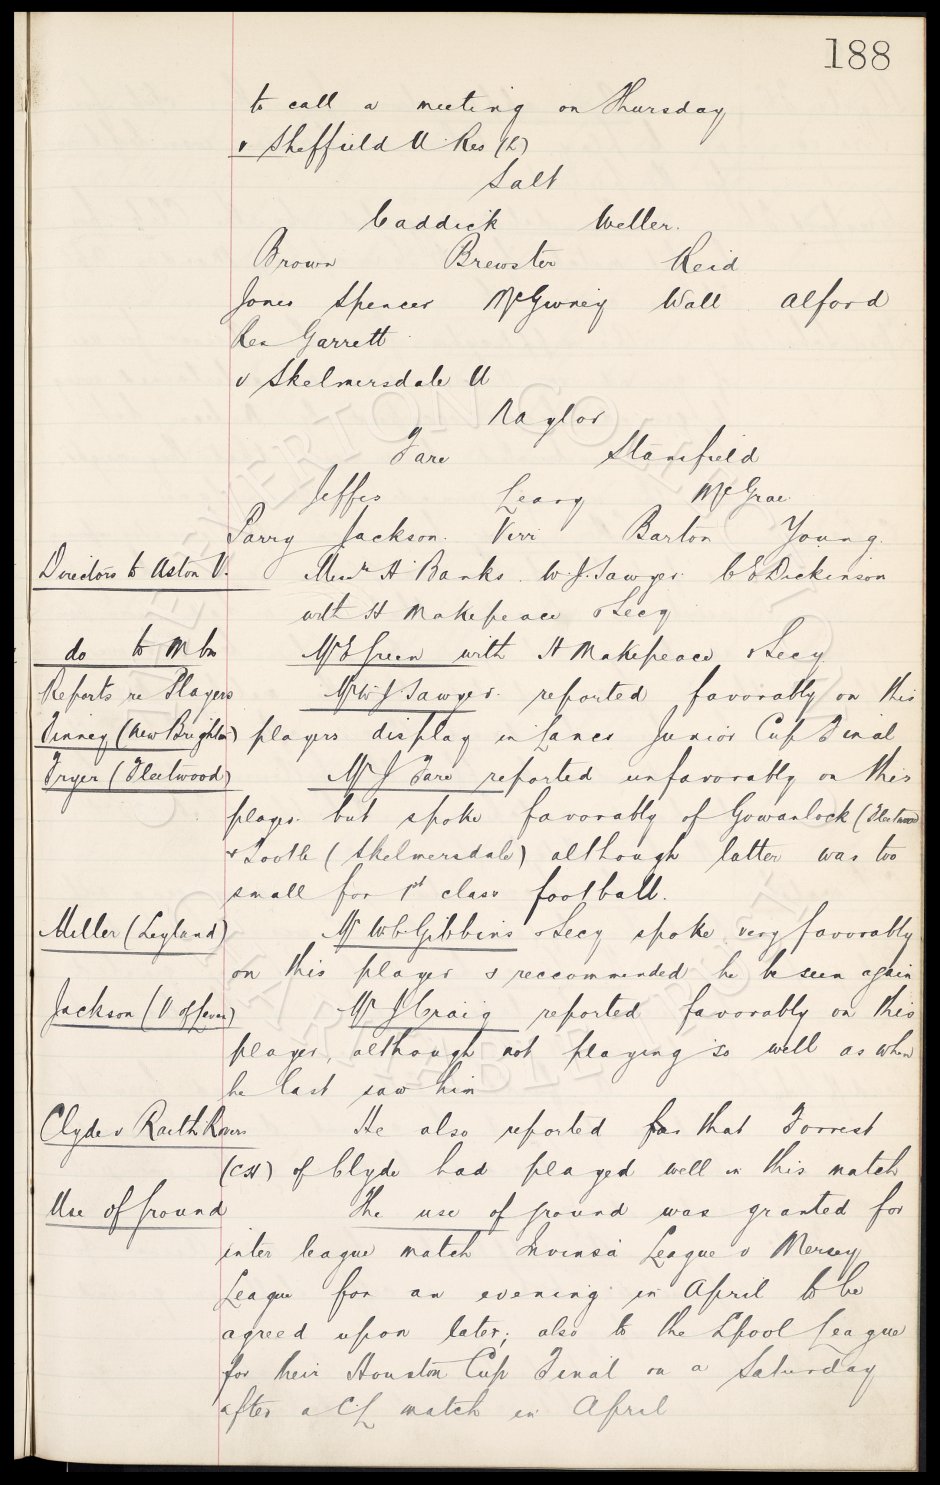 188
to call a meeting on Thursday
v Sheffield U Res (L)
Salt
Caddick Weller.
Brown Brewster Reid
Jones Spencer McGivney Wall Alford
Res Garrett
v Skelmersdale U
Naylor
Fare Stansfield
Jeffis Leary McGrae
Parry Jackson. Virr Barton Young.
Directors to Aston V. Messrs A Banks. W.J. Sawyer. C E Dickinson
with H Makepeace & Secy
do to M Utd Mr E Green with H Makepeace & Secy
Reports re Players Mr W J Sawyer. reported favorably on this
Finney (New Brighton) players display in Lancs Junior Cup Final
Fryer (Fleetwood) Mr J Fare reported unfavorably on this
player. but spoke favorably of Gowanlock (Fleetwood
& Tootle (Skelmersdale) although latter was too
small for 1st class football.
Miller (Leyland) Mr W C Gibbins & Secy spoke very favorably
on this player & reccommended he be seen again
Jackson (V of Leven) Mr J Craig reported favorably on this
player, although not playing so well as when
he last saw him
Clyde v Raith Rovers He also reported that Forrest
(CH) of Clyde had played well in this match
Use of ground The use of ground was granted for
inter league match League v Mersey
League for an evening in April to be
agreed upon later; also to the Lpool League
for their Houston Cup Final on a Saturday
after a CL match in April